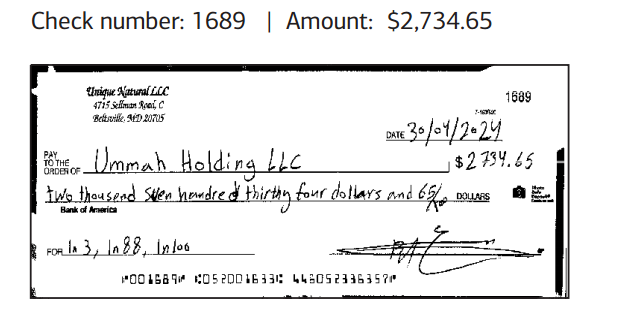 Check number: 1689 | Amount: $2,734.65
Unique Natural LLC
1689
4715 Sellman Road, C
Beltsville, MD 20705
DATE 30/04/2024
PAY TO THE ORDER OF Ummah Holding LLC $2734.65
two thousend seven hendred thirthy four dollars and 65/100 DOLLARS
Bank of America
FOR In 3, In 88, In100